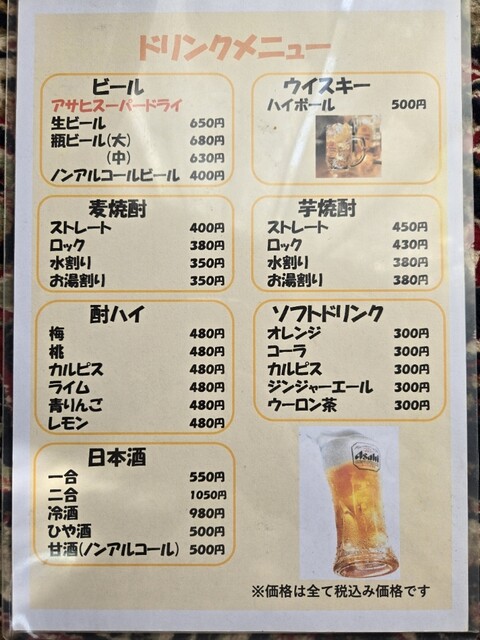 ドリンクメニュー
ビール
アサヒスーパードライ
生ビール 650円
瓶ビール(大) 680円
(中) 630円
ノンアルコールビール 400円
ウイスキー
ハイボール 500円
麦焼酎
ストレート 400円
ロック 380円
水割り 350円
お湯割り 350円
芋焼酎
ストレート 450円
ロック 430円
水割り 380円
お湯割り 380円
酎ハイ
梅 480円
桃 480円
カルピス 480円
ライム 480円
青りんご 480円
レモン 480円
ソフトドリンク
オレンジ 300円
コーラ 300円
カルピス 300円
ジンジャーエール 300円
ウーロン茶 300円
日本酒
一合 550円
二合 1050円
冷酒 980円
ひや酒 500円
甘酒(ノンアルコール) 500円
Asahi
※価格は全て税込み価格です